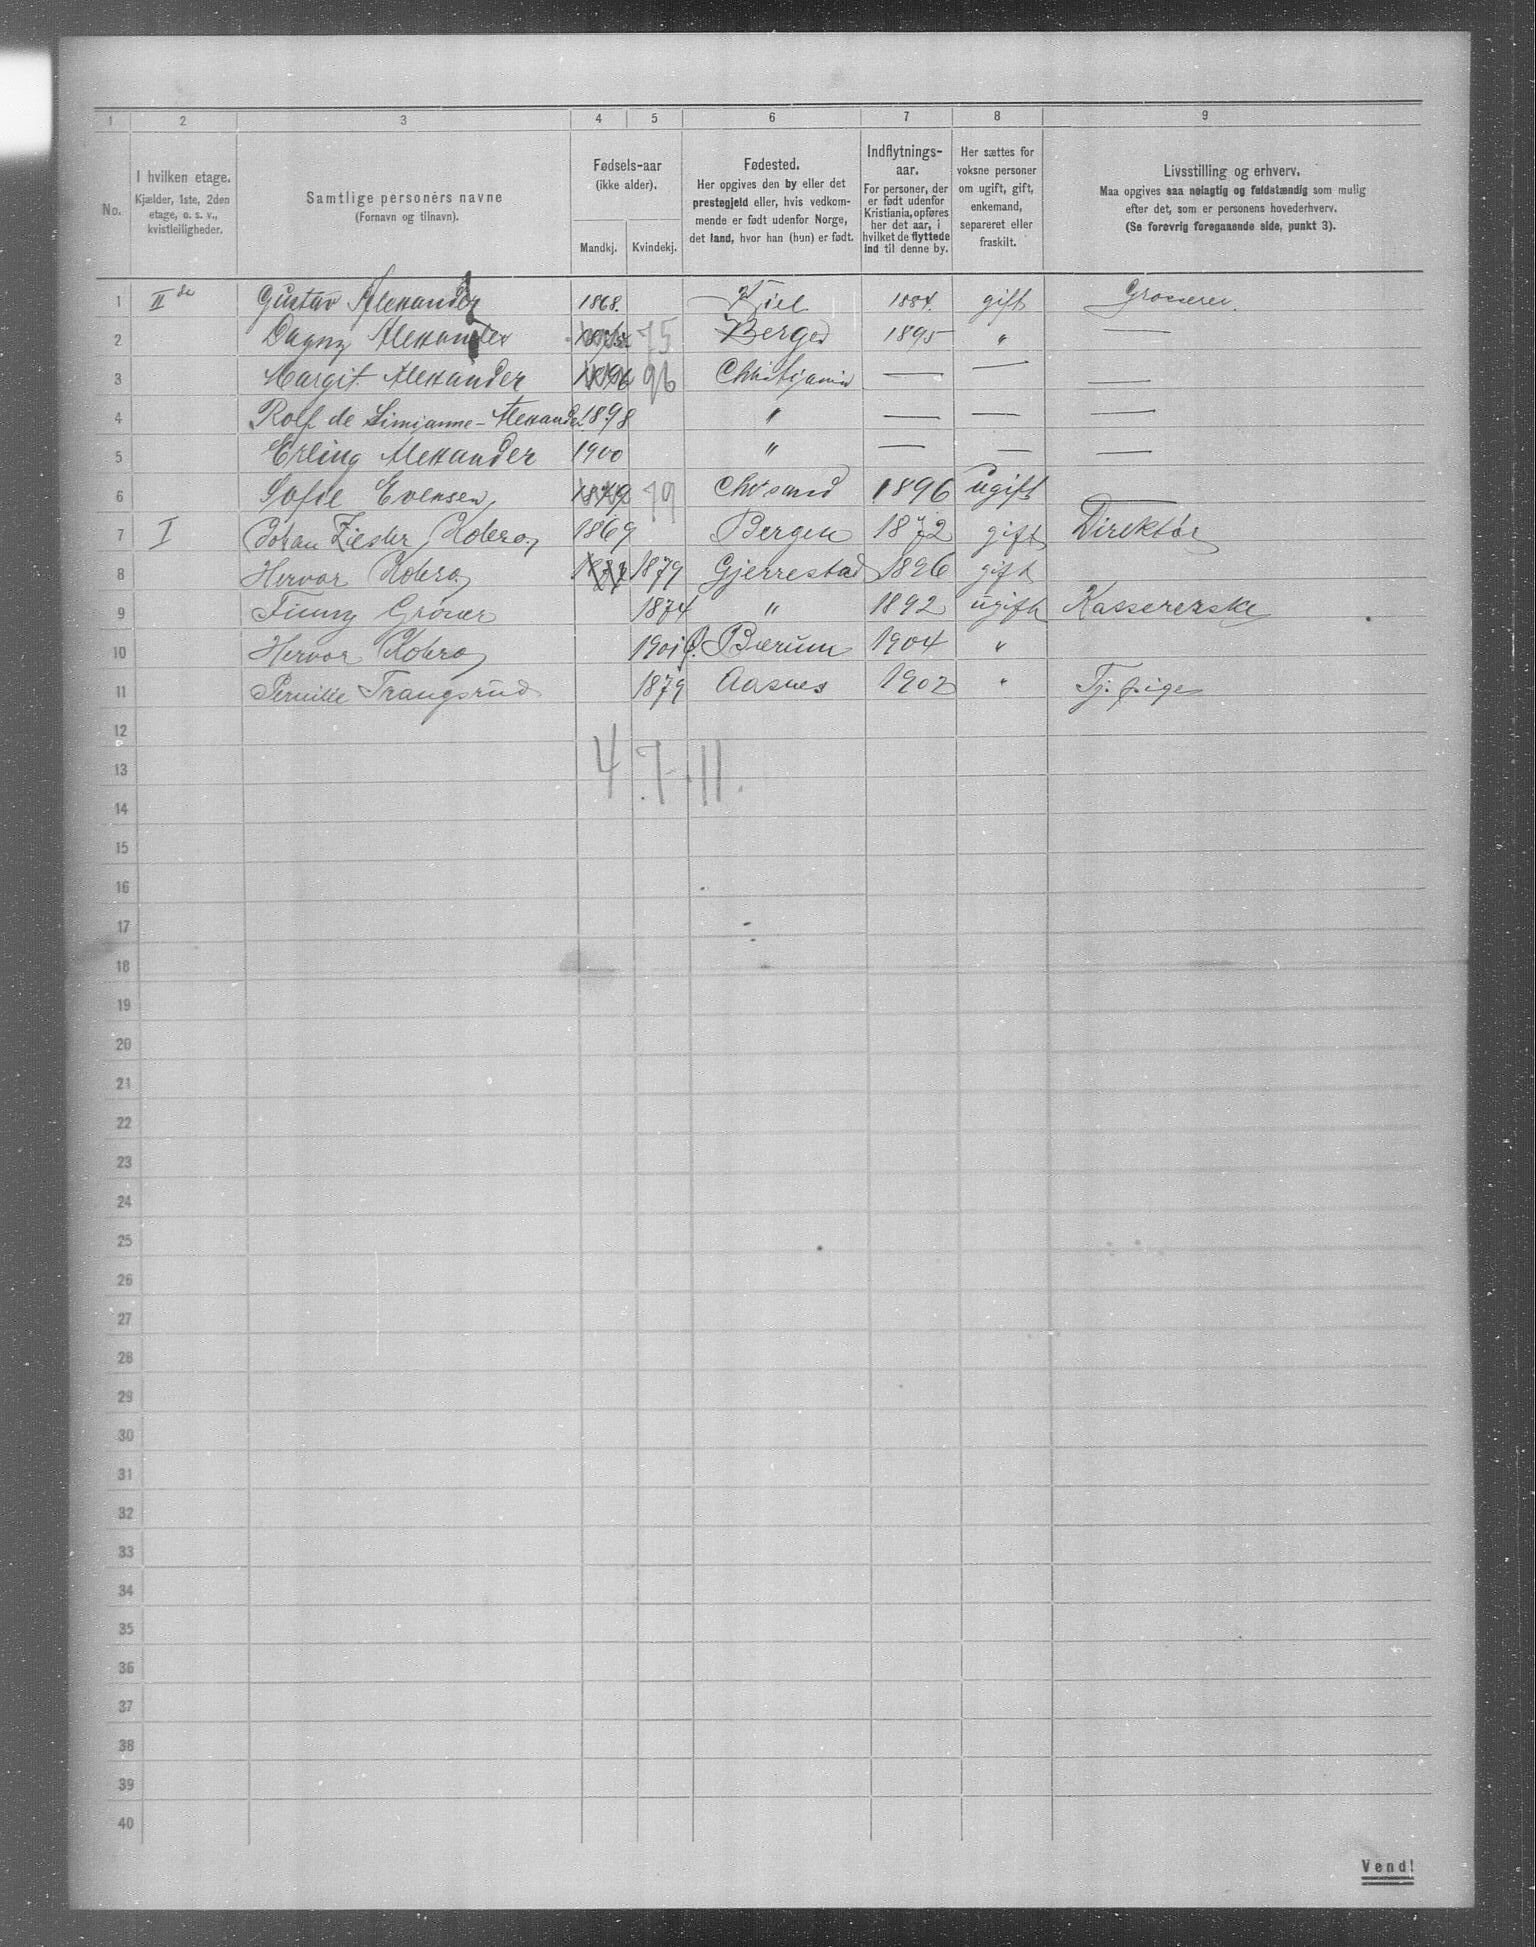 1 2 3 4 5 6 7 8 9
No.
I hvilken etage.
Kjælder, 1ste, 2den
etage, o. s. v.,
kvistleiligheder.
Samtlige personers navne
(Fornavn og tilnavn).
Fødsels-aar
(ikke alder).
Mandkj. Kvindekj.
Fødested.
Her opgives den by eller det
prestegjeld eller, hvis vedkom-
mende er født udenfor Norge,
det land, hvor han (hun) er født.
Indflytnings-
aar.
For personer, der
er født udenfor
Kristiania, opføres
her det aar, i
hvilket de flyttede
ind til denne by.
Her sættes for
voksne personer
om ugift, gift,
enkemand,
separeret eller
fraskilt.
Livsstilling og erhverv.
Maa opgives saa nøiagtig og fuldstændig som mulig
efter det, som er personens hovederhverv.
(Se forøvrig foregaaende side, punkt 3).
1 II de Gustav Alexander 1868. Kiel 1884. gift Grosserer.
2 Dagny Alexander 1875 75 Bergen 1895 "
3 Margit Alexander 1896 96 Christjania — — —
4 Rolf de Alexander 1898 " — — —
5 Erling Alexander 1900 " — — —
6 Sofie Evensen 1879 79 Chrsand 1896 ugift —
7 I Johan Kobro 1869 Bergen 1872 gift Direktør
8 Hervor Kobro 1879 Gjerrestad 1896 gift
9 Grøner 1874 " 1892 ugift Kassererske
10 Hervor Kobro 1901 Bærum 1904 "
11 Pernille Trangsrud 1879 Aasnes 1902 " Tj. pige
12
4 7 - 11.
13
14
15
16
17
18
19
20
21
22
23
24
25
26
27
28
29
30
31
32
33
34
35
36
37
38
39
40
Vend!